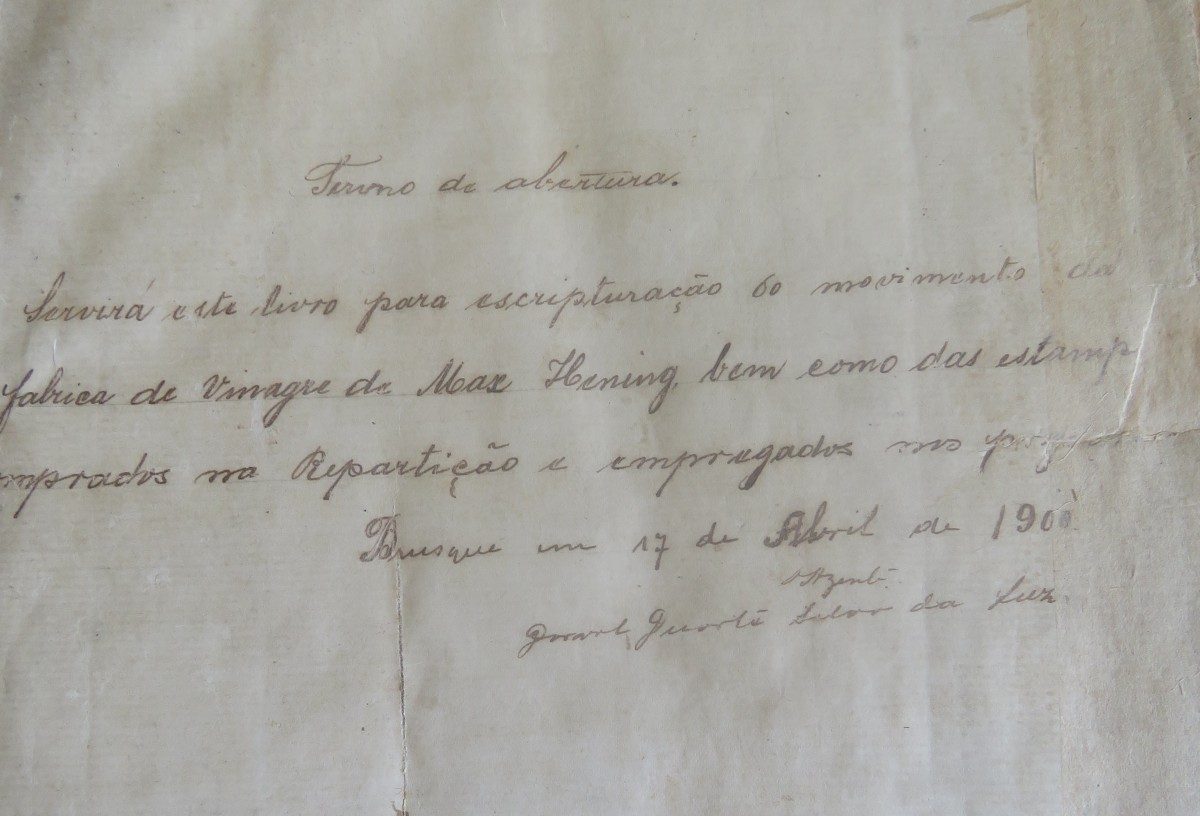 Termo de abertura.
Servirá este livro para escripturação do movimento da
fabrica de Vinagre de Max Hening, bem como das estamp
mprados na Repartição e empregados nos
Brusque em 17 de Abril de 1900
O Agente
Duarte Silva da Luz